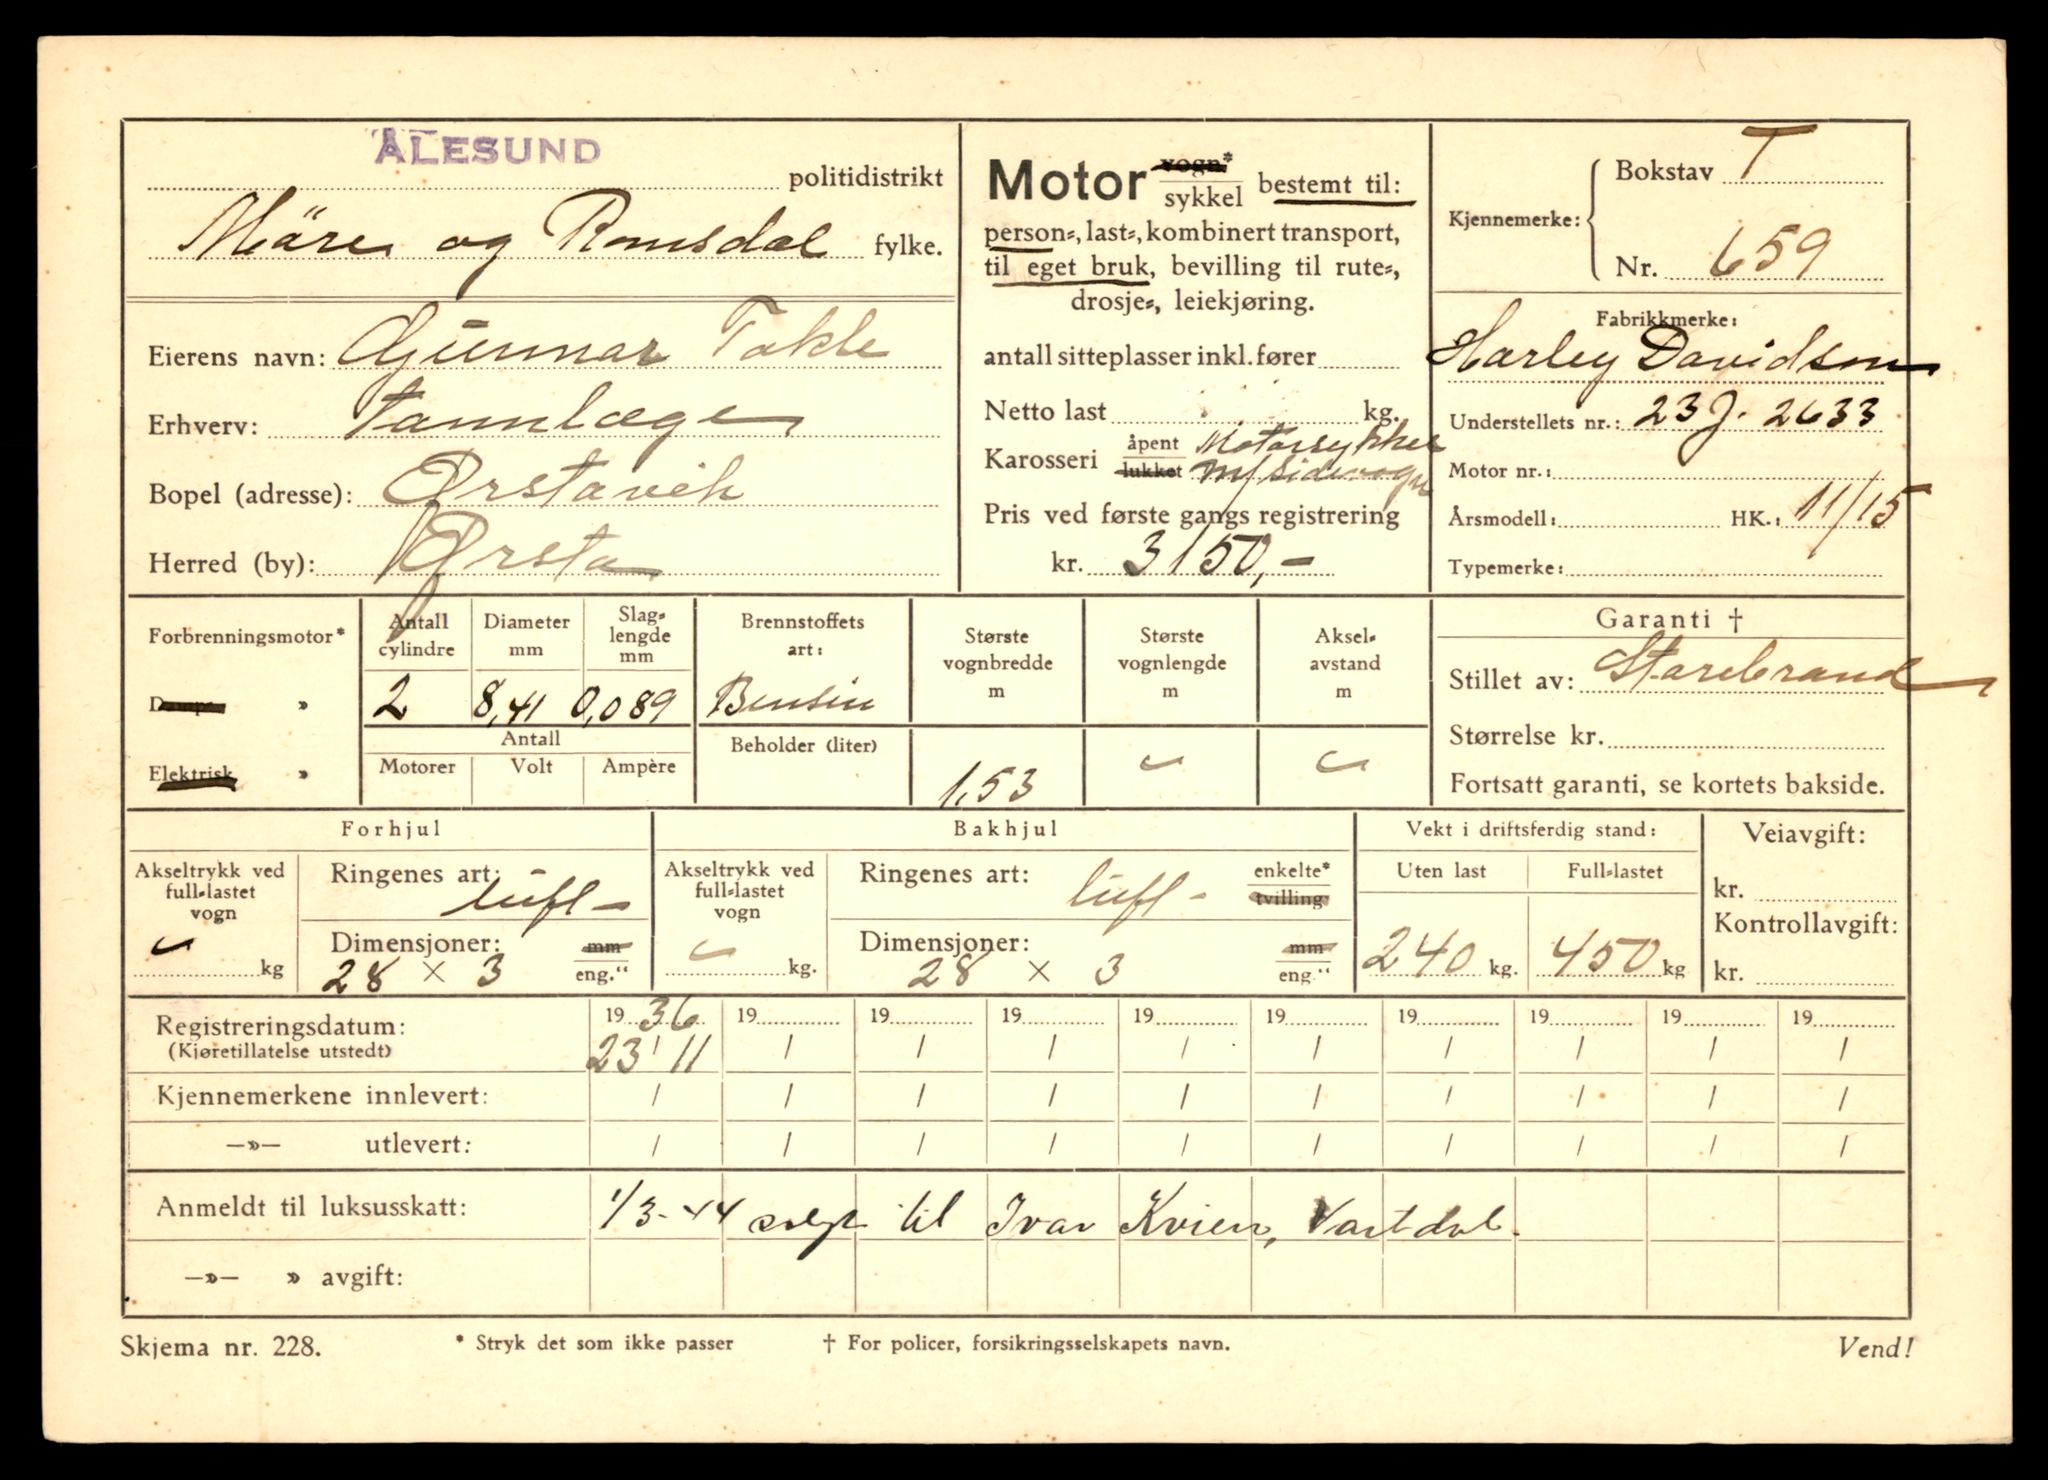 ÅLESUND
politidistrikt
Möre og Romsdal fylke.
Eierens navn: Gunnar Takle
Erhverv: Tannlæge
Bopel (adresse): Ørstavik
Herred (by): Ørsta
Motor vogn* / sykkel bestemt til:
person-, last-, kombinert transport,
til eget bruk, bevilling til rute-,
drosje-, leiekjøring.
antall sitteplasser inkl. fører
Netto last kg.
Karosseri åpent / lukket Motorsykkel
m/sidevogn
Pris ved første gangs registrering
kr. 3150,-
Kjennemerke: Bokstav T
Nr. 659
Fabrikkmerke:
Harley Davidson
Understellets nr.: 23 J. 2633
Motor nr.:
Årsmodell: HK.: 11/15
Typemerke:
Forbrenningsmotor*
Damp- »
Elektrisk »
Antall cylindre
2
Diameter mm
8,41
Slag-lengde mm
0,089
Antall
Motorer Volt Ampère
Brennstoffets art:
Bensin
Beholder (liter)
Største vognbredde m
1,53
Største vognlengde m
Aksel-avstand m
Garanti †
Stillet av: Storebrand
Størrelse kr.
Fortsatt garanti, se kortets bakside.
Forhjul
Akseltrykk ved full-lastet vogn
kg
Ringenes art: luft -
Dimensjoner: mm / eng."
28 × 3
Bakhjul
Akseltrykk ved full-lastet vogn
kg.
Ringenes art: luft - enkelte* / tvilling
Dimensjoner: mm / eng."
28 × 3
Vekt i driftsferdig stand:
Uten last Full-lastet
240 kg. 450 kg
Veiavgift:
kr.
Kontrollavgift:
kr.
Registreringsdatum: 1936 19 19 19 19 19 19 19 19 19
(Kjøretillatelse utstedt) 23/11 / / / / / / / / /
Kjennemerkene innlevert: / / / / / / / / / /
—»— utlevert: / / / / / / / / / /
Anmeldt til luksusskatt: 1/3-44 solgt til Ivar Kvien, Vartdal.
—»— » avgift:
Skjema nr. 228. * Stryk det som ikke passer † For policer, forsikringsselskapets navn. Vend!